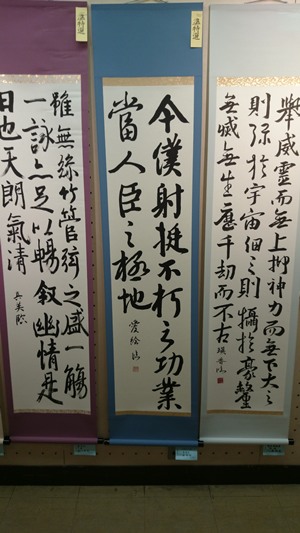 舉威靈而無上抑神力而無下大之
則弥於宇宙細之則攝於毫釐
無滅無生歷千劫而不古
今僕射挺不朽之功業
當人臣之極地
雖無絲竹管弦之盛一觴
一詠亦足以暢叙幽情是
日也天朗氣清